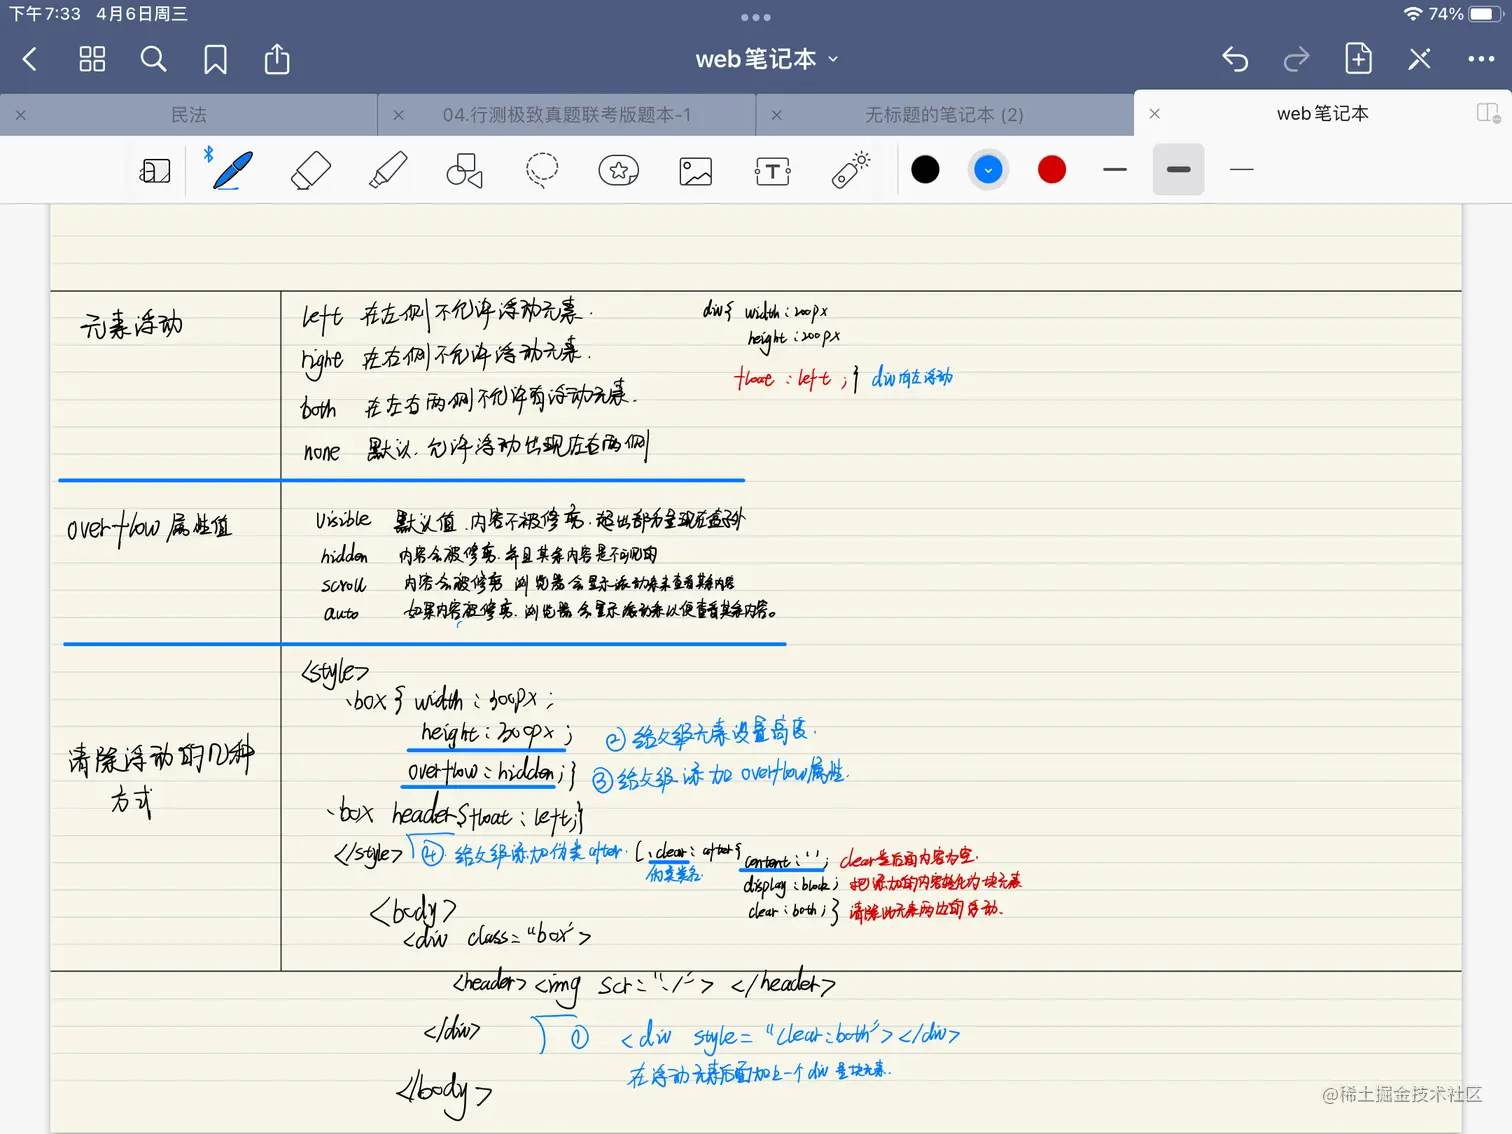 下午7:33 4月6日周三
74%
web笔记本
民法
04.行测极致真题联考版题本-1
无标题的笔记本 (2)
web笔记本
元素浮动
left 在左侧不允许浮动元素.
right 在右侧不允许浮动元素.
both 在左右两侧不允许有浮动元素.
none 默认.允许浮动出现在左右两侧
div{ width:200px
height:200px
float:left;} div向左浮动
overflow属性值
visible 默认值.内容不被修剪.超出部分呈现在盒子外
hidden 内容会被修剪.并且其余内容是不可见的
scroll 内容会被修剪 浏览器会显示滚动条来查看其余内容
auto 如果内容被修剪.浏览器会显示滚动条以便查看其余内容。
清除浮动的几种
方式
<style>
.box{ width:300px;
height:300px; ②给父级元素设置高度.
overflow:hidden;} ③给父级添加overflow属性.
.box header{float:left;}
</style> ④.给父级添加伪类after. [.clear:after{
伪类类名
content:''; clear类后面内容为空.
display:block; 把添加的内容转化为块元素
clear:both;} 清除此元素两边的浮动.
<body>
<div class="box">
<header><img scr="./"> </header>
</div>
① <div style="clear:both"></div>
在浮动元素后面加上一个div是块元素.
</body>
@稀土掘金技术社区